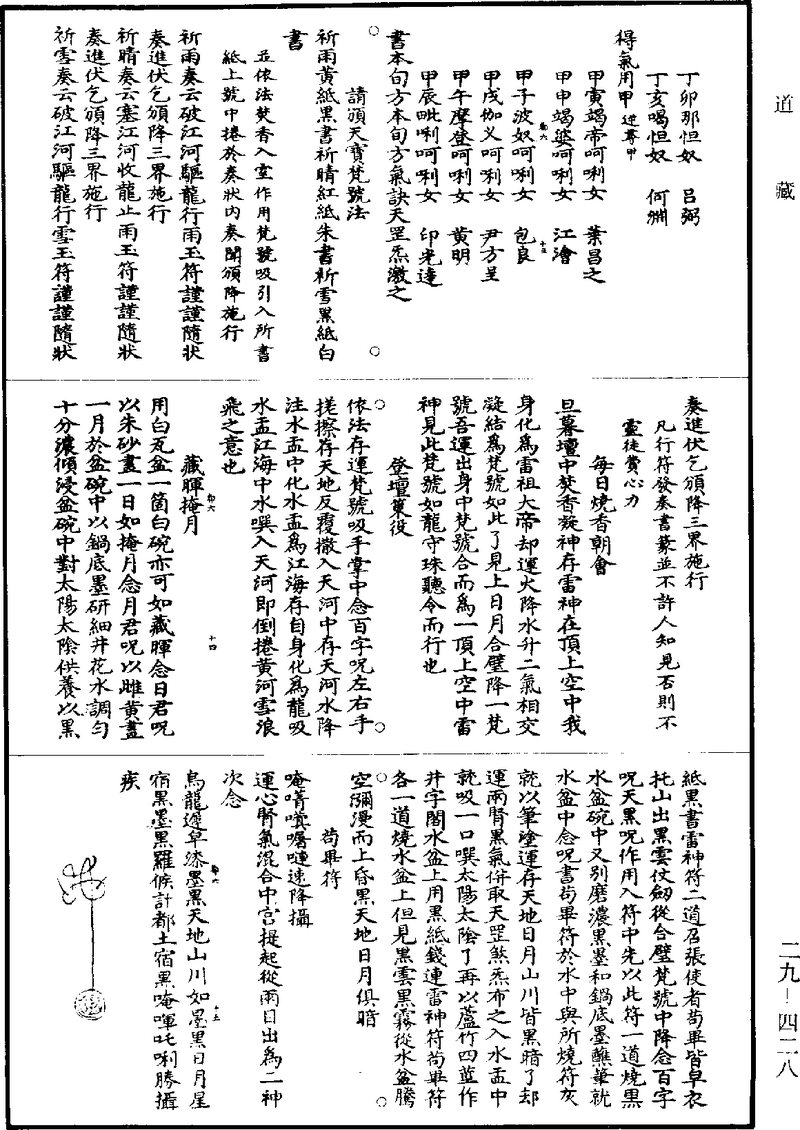 道藏
丁卯那怛奴　呂弼
丁亥喝怛奴　何淵
得氣用甲逆尋甲
甲寅竭帝呵唎女　葉昌之
甲申竭婆呵唎女　江濬
甲子波奴呵唎女　包良
甲戌伽义呵唎女　尹方呈
甲午摩登呵唎女　黃明
甲辰毗唎呵唎女　印光達
書本旬方本旬方氣訣天罡炁激之
請頒天寶梵號法
祈雨黃紙黑書祈晴紅紙朱書祈雪黑紙白
書
並依法焚香入室作用梵號吸引入所書
紙上號中捲於奏狀內奏聞頒降施行
祈雨奏云破江河驅龍行雨玉符謹謹隨狀
奏進伏乞頒降三界施行
祈晴奏云塞江河收龍止雨玉符謹謹隨狀
奏進伏乞頒降三界施行
祈雪奏云破江河驅龍行雪玉符謹謹隨狀
奏進伏乞頒降三界施行
凡行符發奏書篆並不許人知見否則不
靈徒費心力
每日燒香朝會
旦暮壇中焚香凝神存雷神在頂上空中我
身化為雷祖大帝却運火降水升二氣相交
凝結為梵號如此了見上日月合璧降一梵
號吾運出身中梵號合而為一頂上空中雷
神見此梵號如龍守珠聽令而行也
登壇策役
依法存運梵號吸手掌中念百字呪左右手
搓擦存天地反覆撒入天河中存天河水降
注水盂中化水盂為江海存自身化為龍吸
水盂江海中水噀入天河即倒捲黃河雪浪
飛之意也
藏暉掩月
用白瓦盆一箇白碗亦可如藏暉念日君呪
以朱砂畫一日如掩月念月君呪以雌黃畫
一月於盆碗中以鍋底墨研細井花水調勻
十分濃傾浸盆碗中對太陽太陰供養以黑
紙黑書雷神符二道召張使者苟畢皆皁衣
托山出黑雲仗劒從合璧梵號中降念百字
呪天黑呪作用入符中先以此符一道燒黑
水盆碗中又別磨濃黑墨和鍋底墨蘸筆就
水盆中念呪書苟畢符於水中與所燒符灰
就以筆塗運存天地日月山川皆黑暗了却
運兩腎黑氣併取天罡煞炁布之入水盂中
就吸一口噀太陽太陰了再以蘆竹四莖作
井字閣水盆上用黑紙錢連雷神符苟畢符
各一道燒水盆上但見黑雲黑霧從水盆騰
空瀰漫而上昏黑天地日月俱暗
苟畢符
唵囉嚏速降攝
運心腎氣混合中宮提起從兩目出為二神
次念
烏龍遲皁漆墨黑天地山川如墨黑日月星
宿黑墨黑羅候計都土宿黑唵㖇吒唎勝攝
疾
二九—四二八